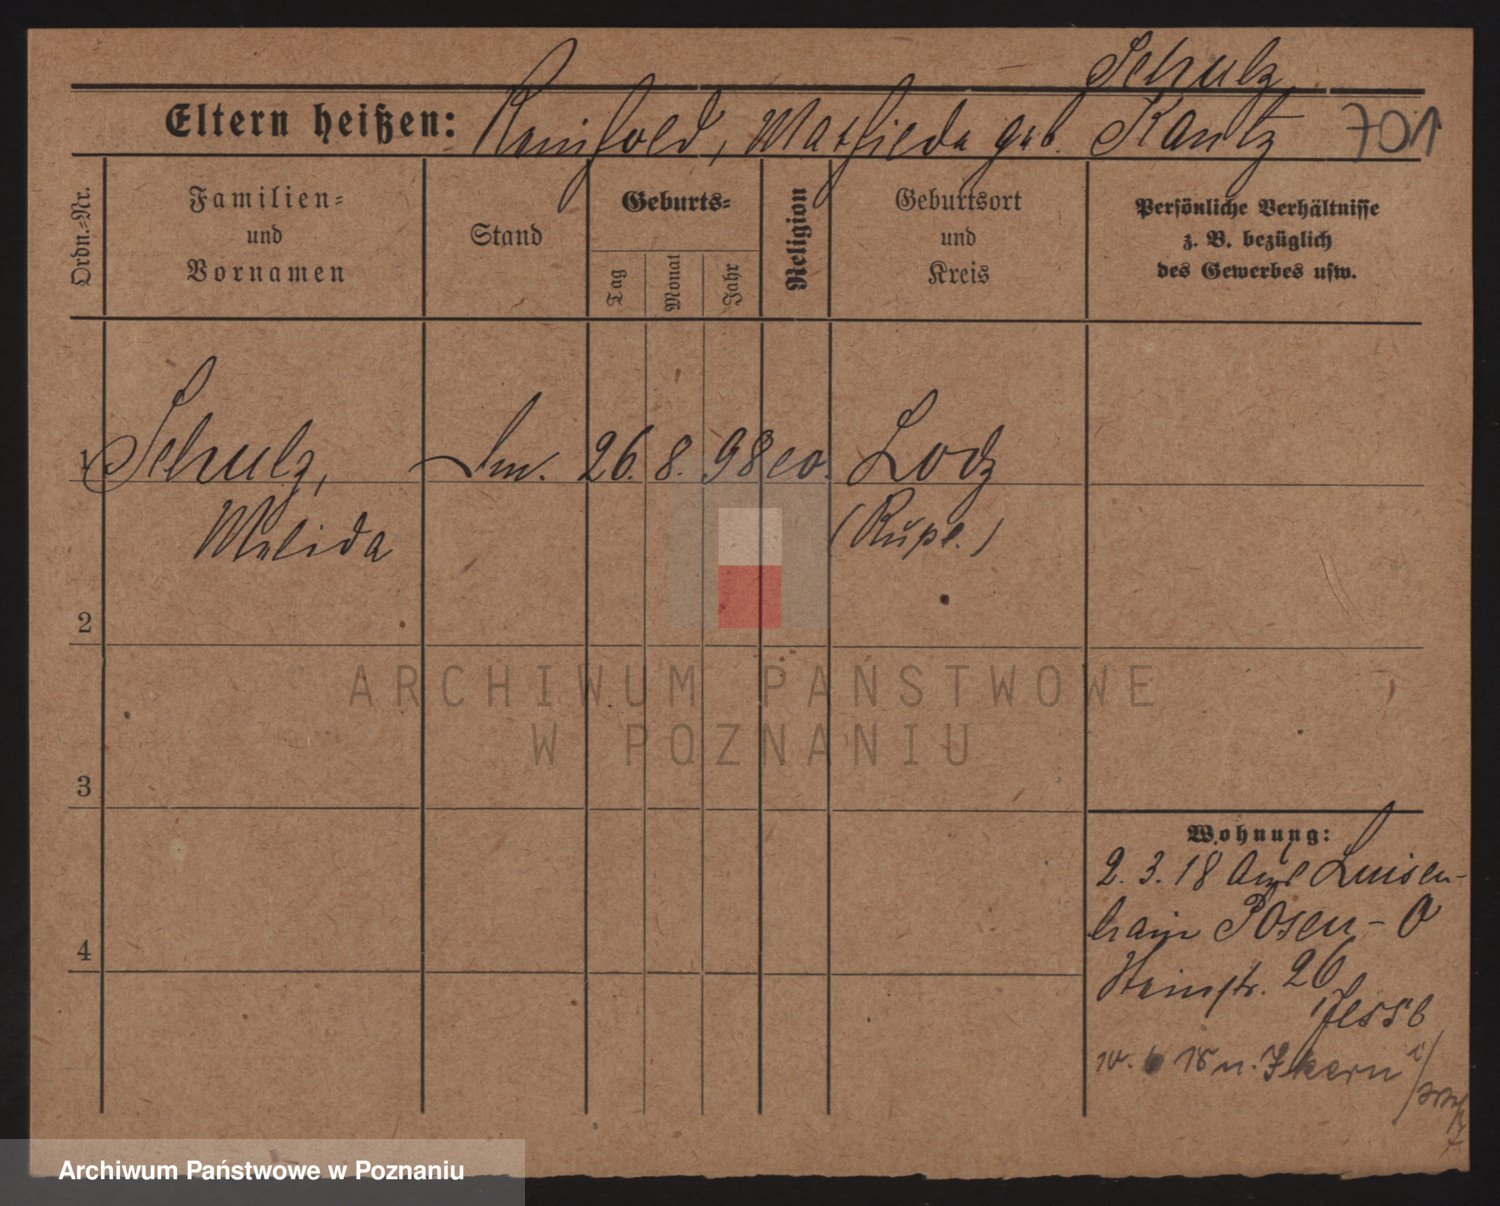 Schulz
Eltern heißen: Reinhold, Mathilde geb. Kantz 701
Ordn.-Nr.
Familien-
und
Vornamen
Stand
Geburts-
Tag
Monat
Jahr
Religion
Geburtsort
und
Kreis
Persönliche Verhältnisse
z. B. bezüglich
des Gewerbes usw.
1 Schulz, 26. 8. 98 Lodz
(Rußl.)
2
3
4
Wohnung:
2. 3. 18 Luisen-
hain Posen-O
26
10. 18 n.
ARCHIWUM PAŃSTWOWE
W POZNANIU
Archiwum Państwowe w Poznaniu